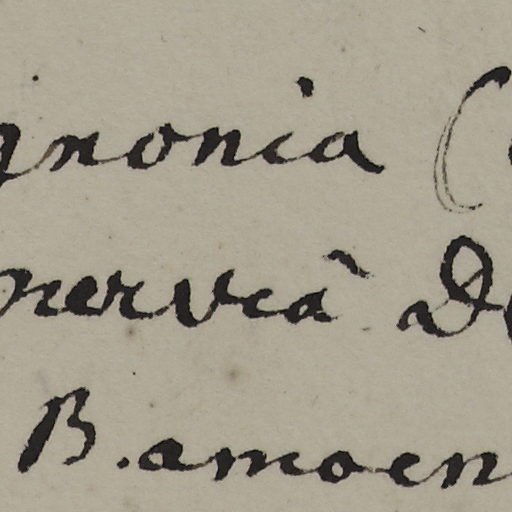 gnonia (
nerviâ D
B. amoen